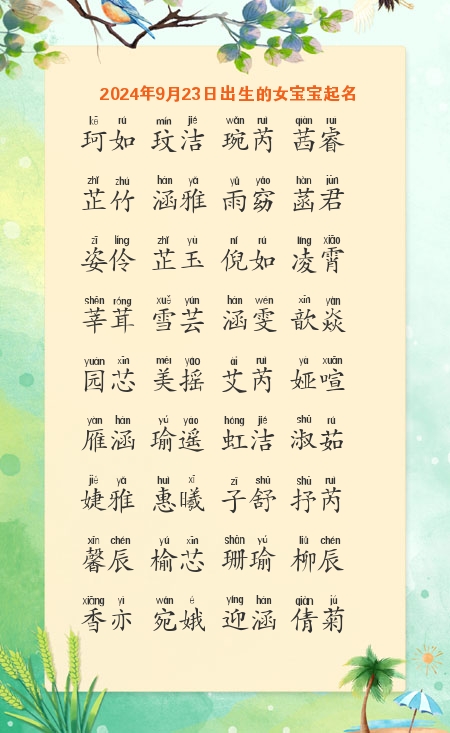 2024年9月23日出生的女宝宝起名
kē rú mín jié wǎn ruì qiàn ruì
珂如 玟洁 琬芮 茜睿
zhǐ zhú hán yǎ yǔ yǎo hàn jūn
芷竹 涵雅 雨窈 菡君
zī líng zhǐ yù ní rú líng xiāo
姿伶 芷玉 倪如 凌霄
shēn róng xuě yún hán wén xīn yàn
莘茸 雪芸 涵雯 歆焱
yuán xīn měi yáo ài ruì yà xuān
园芯 美摇 艾芮 娅喧
yàn hán yú yáo hóng jié shū rú
雁涵 瑜遥 虹洁 淑茹
jié yǎ huì xī zǐ shū shū ruì
婕雅 惠曦 子舒 抒芮
xīn chén yú xīn shān yú liǔ chén
馨辰 榆芯 珊瑜 柳辰
xiāng yì wǎn é yíng hán qiàn jú
香亦 宛娥 迎涵 倩菊